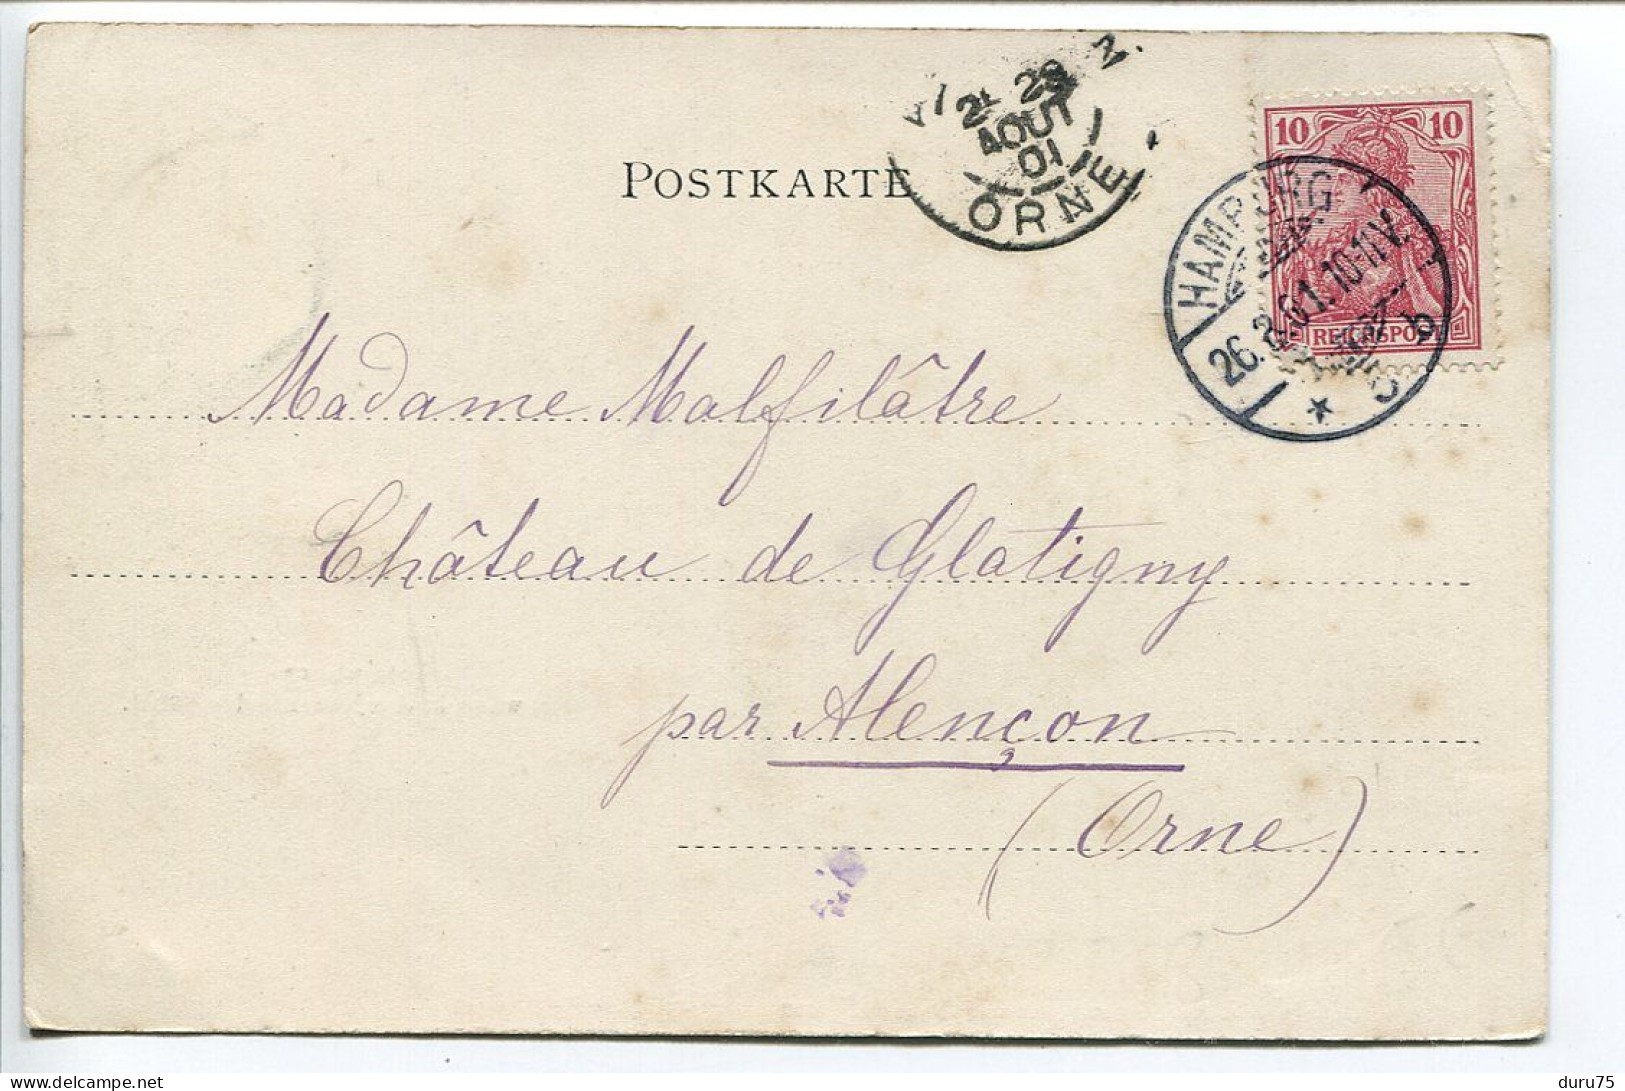 POSTKARTE
28
AOUT
01
ORNE
10 10
REICHSPOST
HAMBURG
26.8.01. 10-11V.
* 5 b
Madame Malfilâtre
Château de Glatigny
par Alençon
(Orne)
delcampe.net
duru75